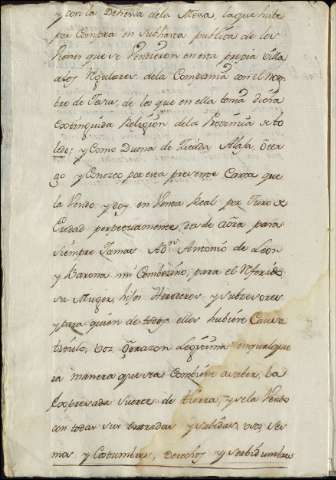 y con la Dehesa dela Mesa, la que hube
por Compra en Subhasta publica de los
vienes que se Vendieron en esta propia Villa
alos Rgulares dela Compañia con el Nom
bre de Jesus, de los que en ella tenia dicha
extinguida Religion dela Provincia de to
ledo; y Como Dueña de dicha Alaja otor
go y Conozco por esta presente Carta que
la Vendo y doy en Venta Real por Juro de
Eredad perpetuamente, desde aora para
Siempre Jamas A Dn Antonio de Leon
y Barona mi Combecino, para el Referido
su Muger, hijos Herederos y Subcesores
y para quien de ellos hubiere Causa
titulo, voz y razon Legitima en qualquie
ra manera que sea Combiene a saber, la
Expresada Suerte de tierra, y sela Vendo
con todas sus entradas y salidas, usos,
mos y Costumbres, derechos y serbidumbres